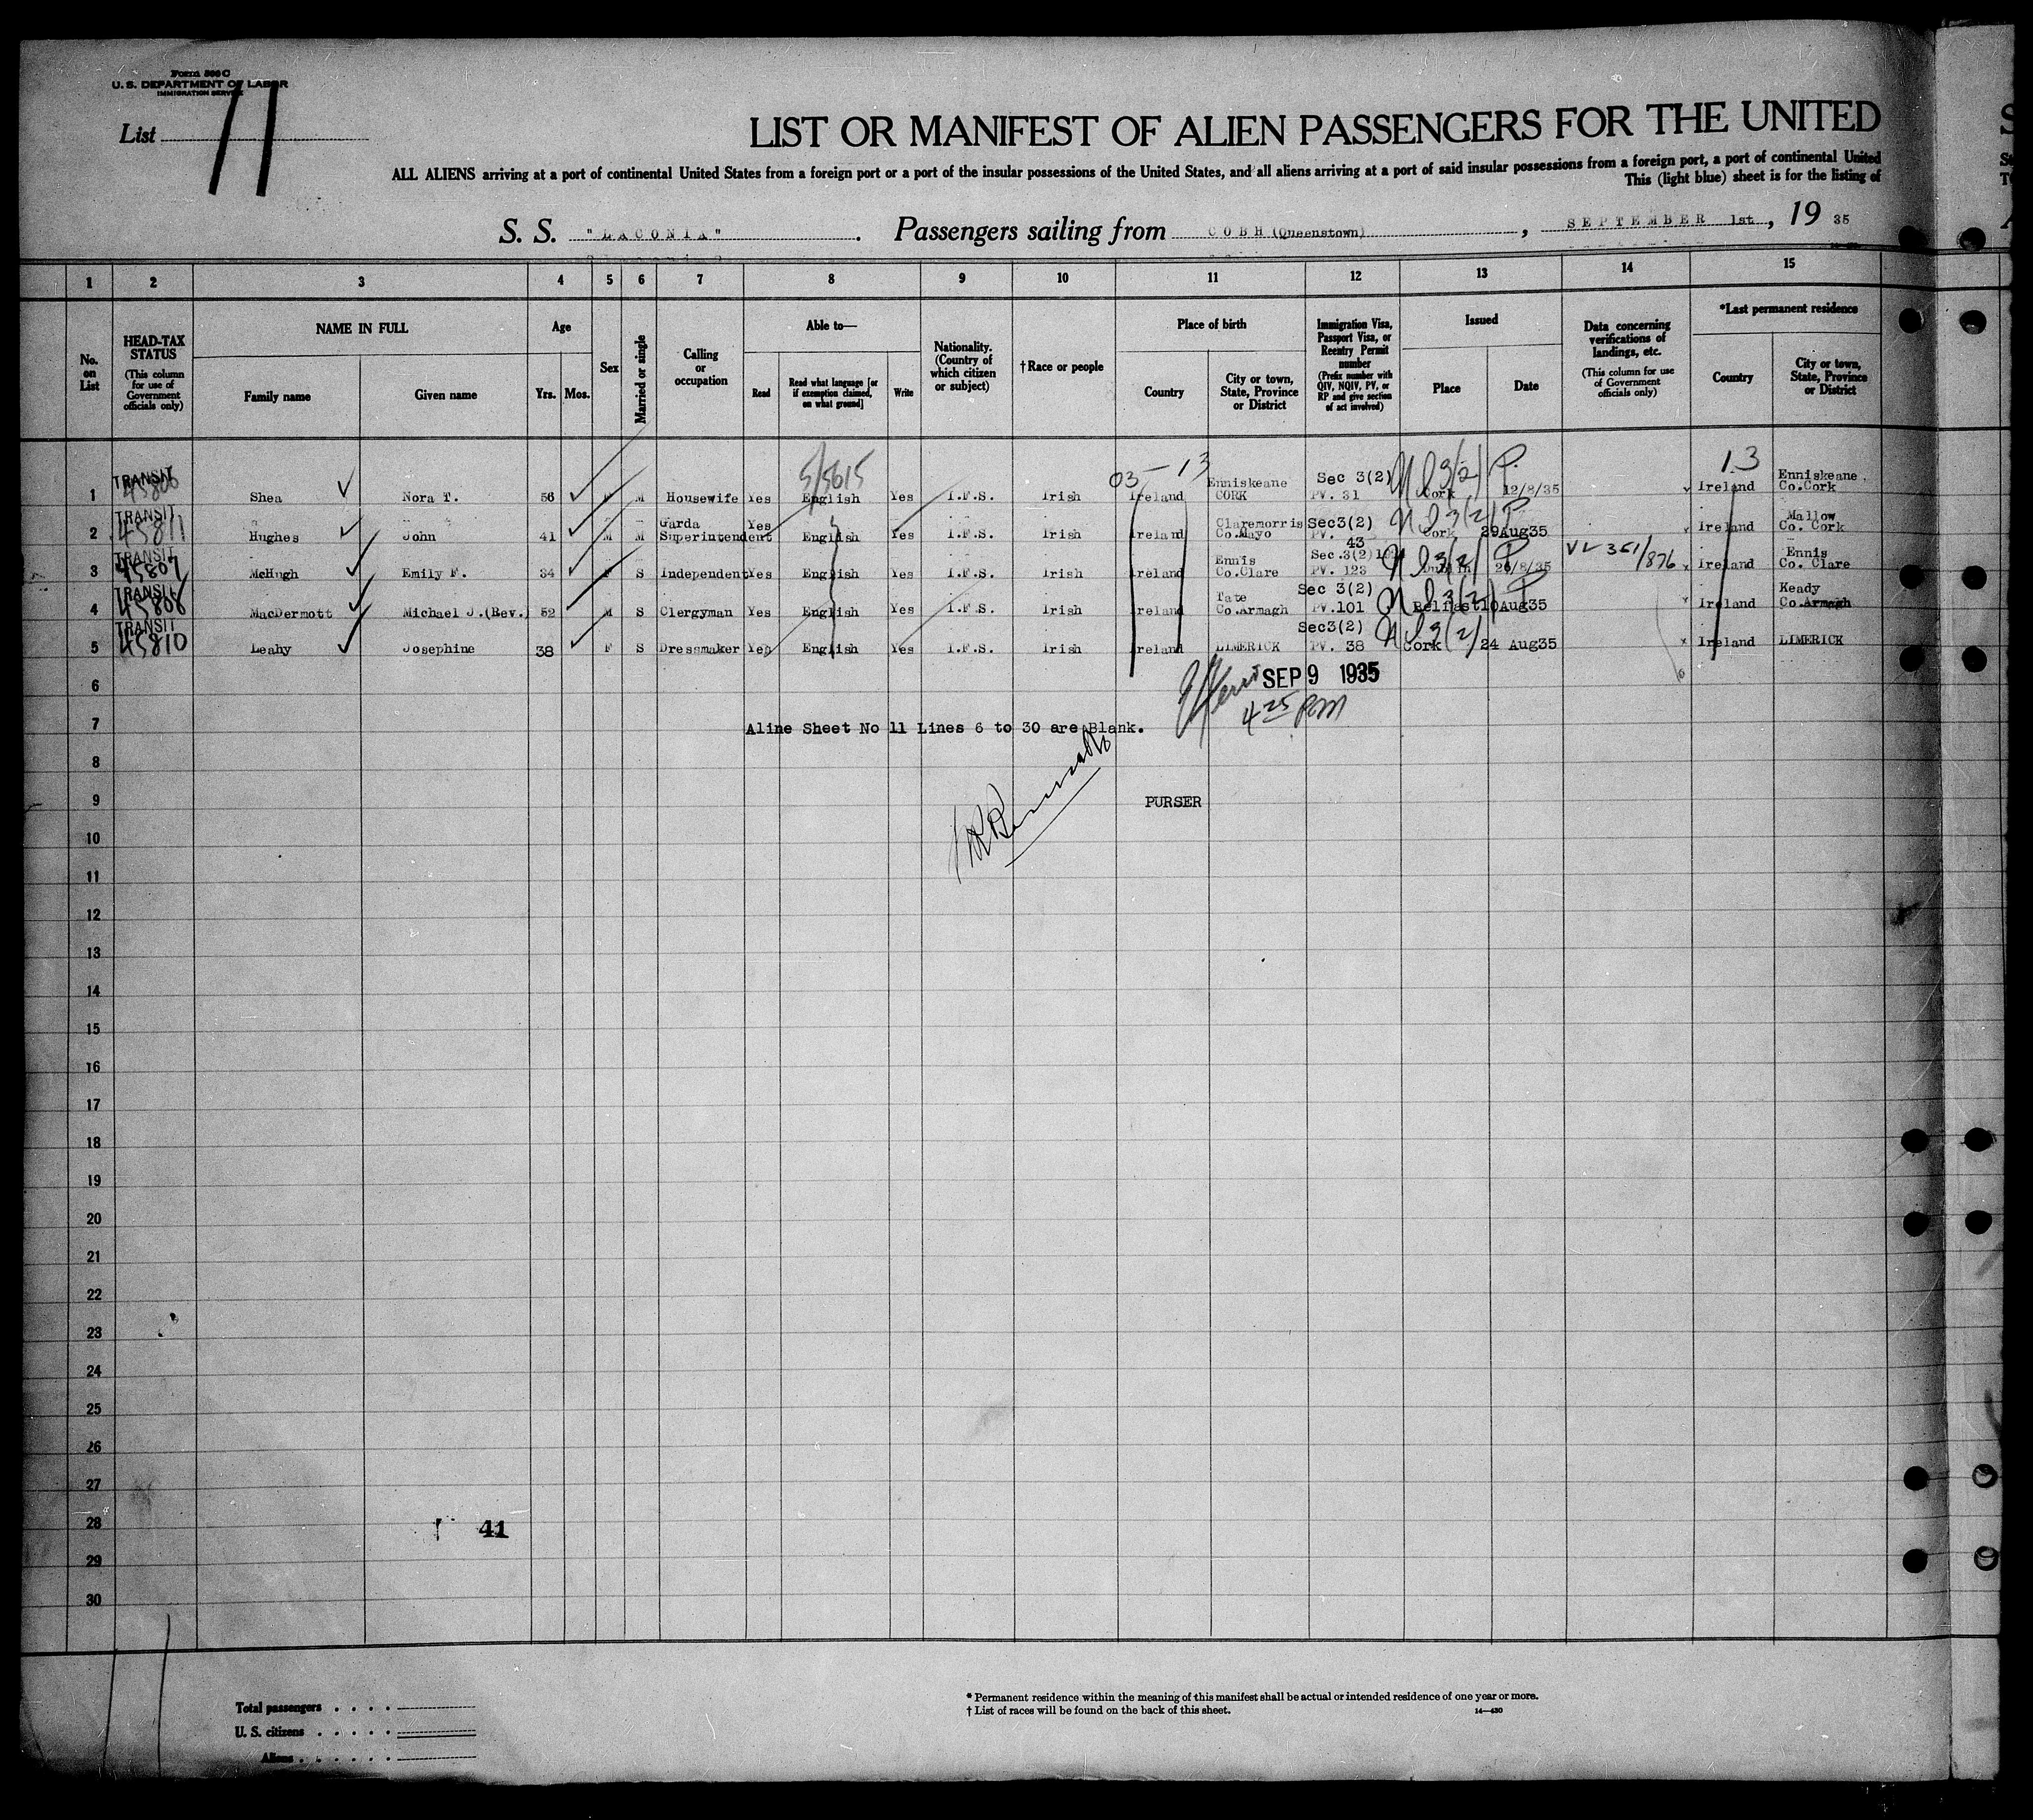 Form 500 C
U. S. DEPARTMENT OF LABOR
IMMIGRATION SERVICE
List 11
LIST OR MANIFEST OF ALIEN PASSENGERS FOR THE UNITED
ALL ALIENS arriving at a port of continental United States from a foreign port or a port of the insular possessions of the United States, and all aliens arriving at a port of said insular possessions from a foreign port, a port of continental United
This (light blue) sheet is for the listing of
S. S. "LACONIA". Passengers sailing from COBH (Queenstown), SEPTEMBER 1st, 19 35
1 2 3 4 5 6 7 8 9 10 11 12 13 14 15
No. on List
HEAD-TAX STATUS
(This column for use of Government officials only)
NAME IN FULL
Family name
Given name
Age
Yrs. Mos.
Sex
Married or single
Calling or occupation
Able to—
Read
Read what language [or if exemption claimed, on what ground]
Write
Nationality. (Country of which citizen or subject)
†Race or people
Place of birth
Country
City or town, State, Province or District
Immigration Visa, Passport Visa, or Reentry Permit number
(Prefix number with QIV, NQIV, PV, or RP and give section of act involved)
Issued
Place
Date
Data concerning verifications of landings, etc.
(This column for use of Government officials only)
*Last permanent residence
Country
City or town, State, Province or District
5/5615 03 - 13 13
1 TRANSIT Shea Nora T. 56 F M Housewife Yes English Yes I.F.S. Irish Ireland Enniskeane CORK Sec 3(2) PV. 31 Cork 12/8/35 Ireland Enniskeane Co.Cork
2 TRANSIT 45811 Hughes John 41 M M Garda Superintendent Yes English Yes I.F.S. Irish Ireland Claremorris Co.Mayo Sec3(2) PV. 43 Cork 29Aug35 Ireland Mallow Co. Cork
3 TRANSIT 45807 McHugh Emily F. 34 F S Independent Yes English Yes I.F.S. Irish Ireland Ennis Co.Clare Sec.3(2) PV. 123 Dublin 26/8/35 VL 351/876 Ireland Ennis Co. Clare
4 TRANSIT MacDermott Michael J.(Rev.) 52 M S Clergyman Yes English Yes I.F.S. Irish Ireland Tate Co.Armagh Sec 3(2) PV.101 Belfast 10Aug35 Ireland Keady Co.Armagh
5 TRANSIT 45810 Leahy Josephine 38 F S Dressmaker Yes English Yes I.F.S. Irish Ireland LIMERICK Sec3(2) PV. 38 Cork 24 Aug35 Ireland LIMERICK
6 SEP 9 1935
4 25 PM
7 Aline Sheet No 11 Lines 6 to 30 are Blank.
8
9 PURSER
10
11
12
13
14
15
16
17
18
19
20
21
22
23
24
25
26
27
28 41
29
30
Total passengers
U. S. citizens
Aliens
* Permanent residence within the meaning of this manifest shall be actual or intended residence of one year or more.
† List of races will be found on the back of this sheet.
14—430